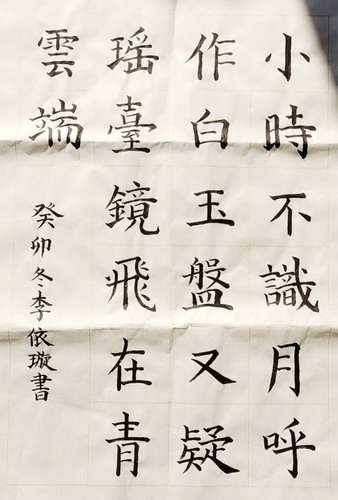 小時不識月呼
作白玉盤又疑
瑶臺鏡飛在青
雲端
癸卯冬李依璇書